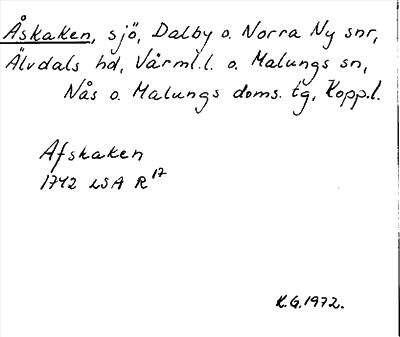 Åskaken, sjö, Dalby o. Norra Ny snr,
Älvdals hd, Värml.l. o. Malungs sn,
Nås o. Malungs doms. tg, Kopp.l.
Afskaken
1742 LSA R 17
K.G.1972.